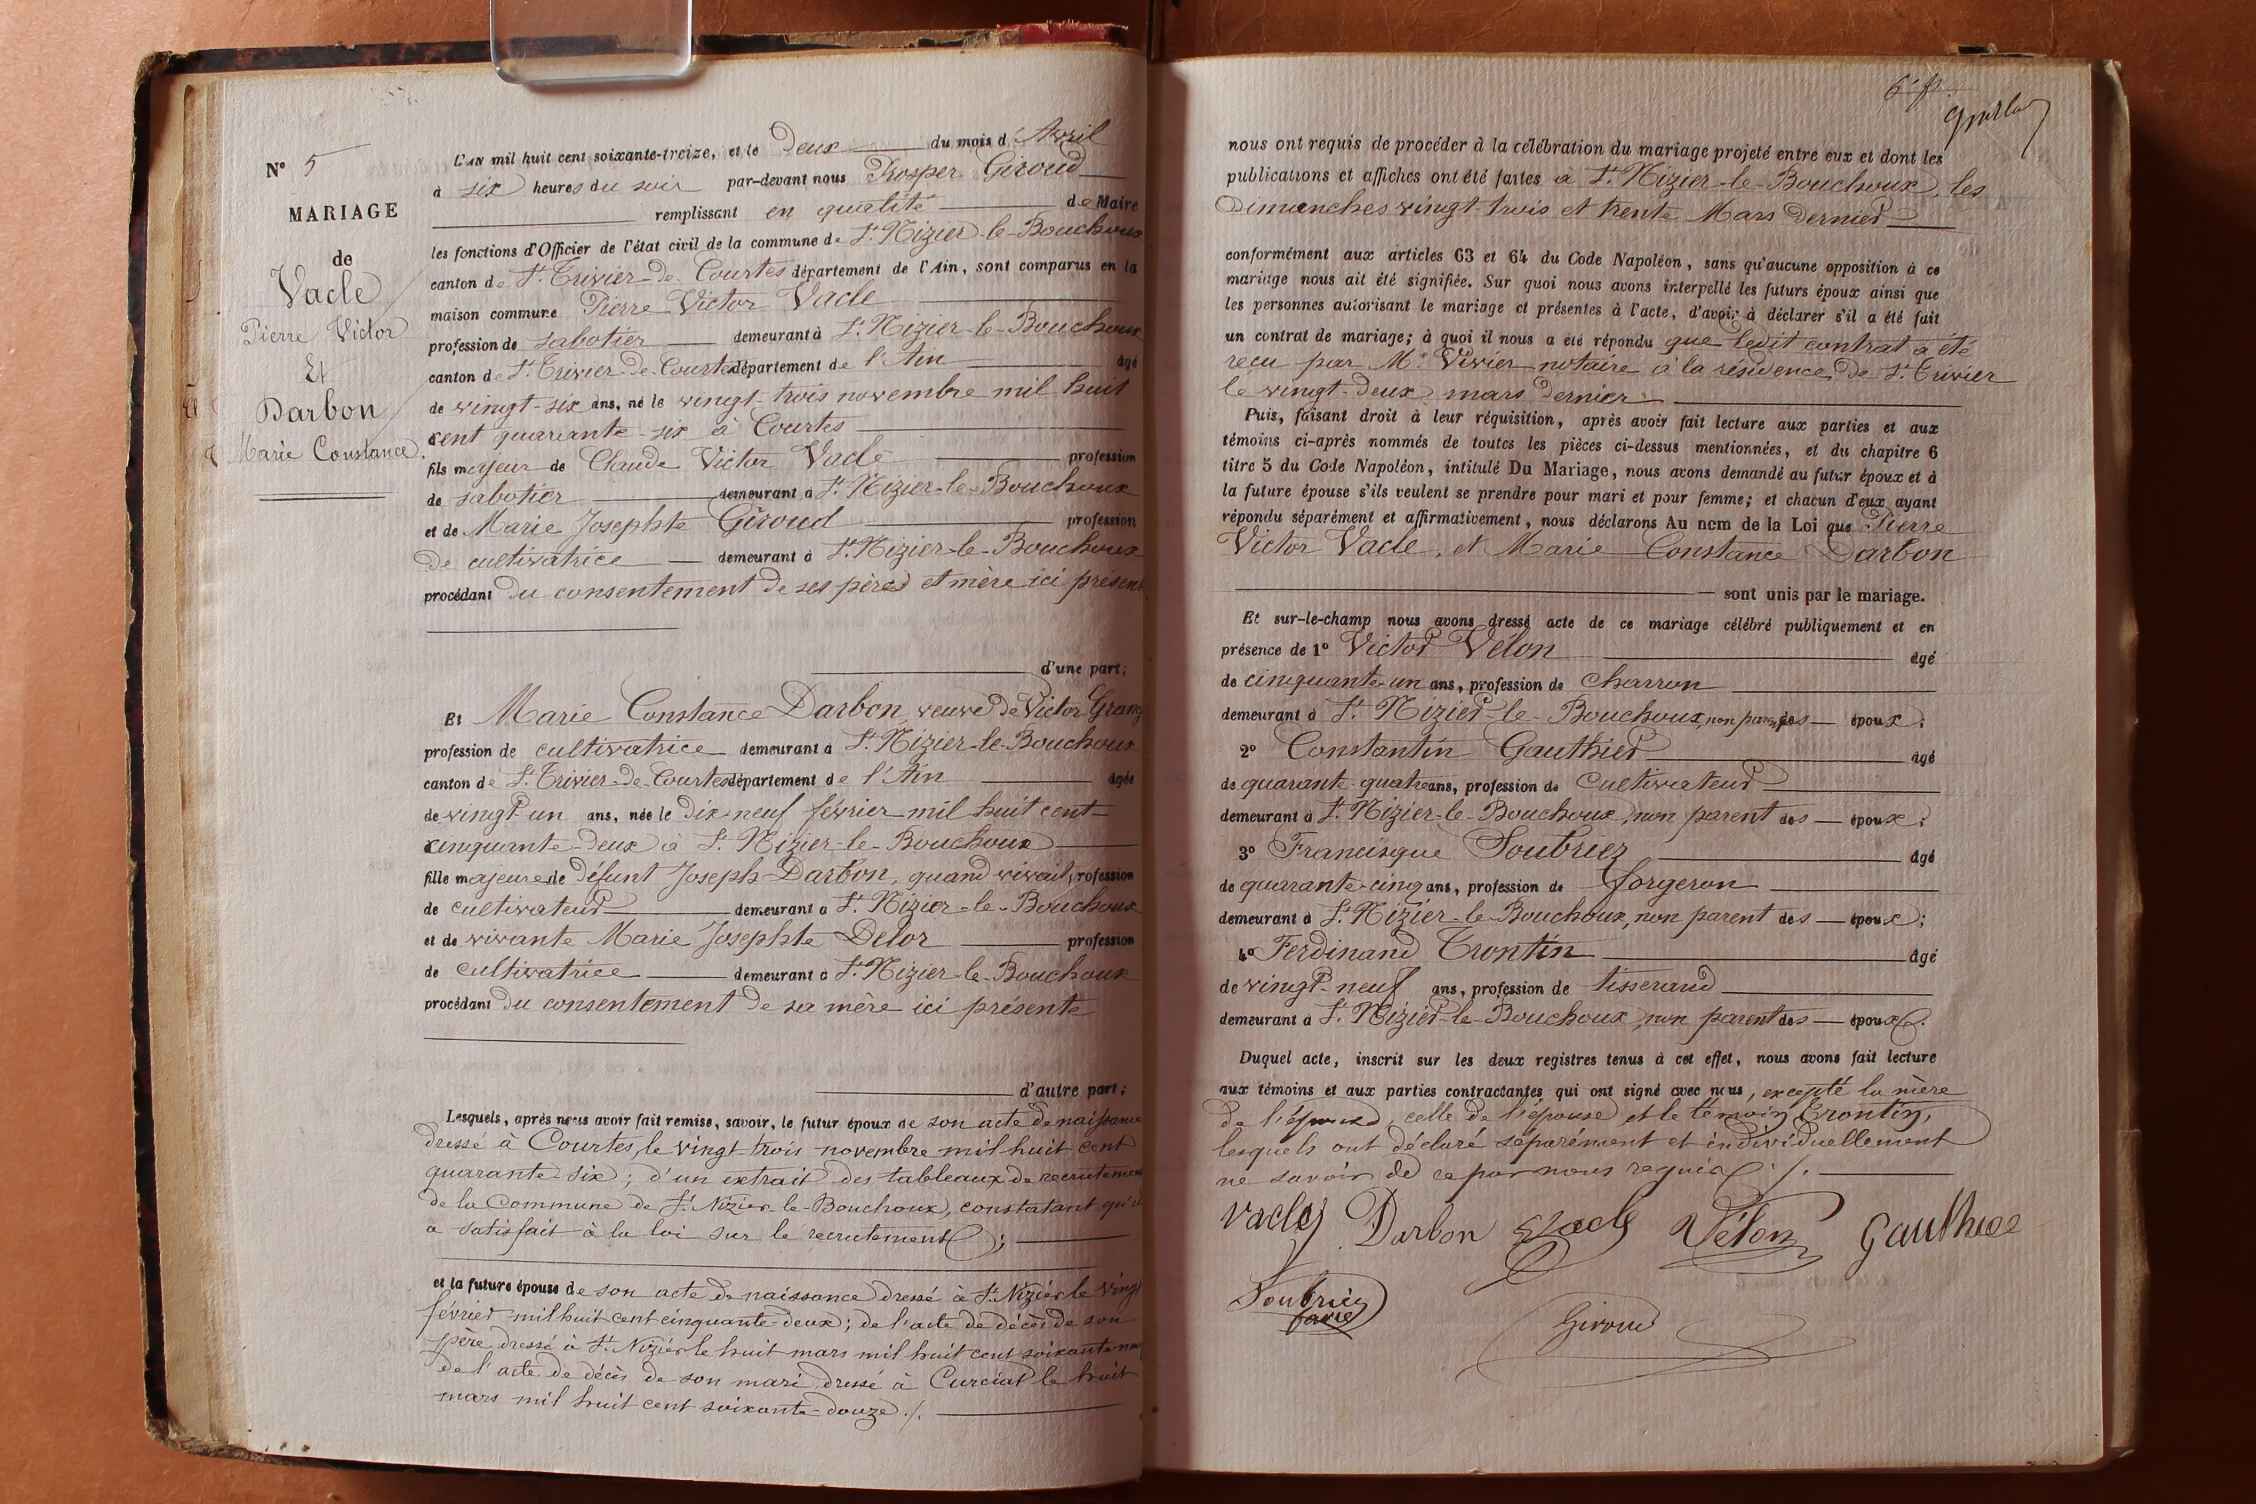 N° 5
MARIAGE
de
Vacle
Pierre Victor
Et
Darbon
Marie Constance.
L'AN mil huit cent soixante-treize, et le Deux du mois d'Avril
à six heures du soir par-devant nous Prosper Giroud
remplissant en qualité de Maire
les fonctions d'Officier de l'état civil de la commune de St. Nizier-le-Bouchoux
canton de St. Trivier-de-Courtes département de l'Ain, sont comparus en la
maison commune Pierre Victor Vacle
profession de sabotier demeurant à St. Nizier-le-Bouchoux
canton de St. Trivier-de-Courtes département de l'Ain âgé
de vingt-six ans, né le vingt-trois novembre mil huit
cent quarante-six à Courtes
fils majeur de Claude Victor Vacle profession
de sabotier demeurant à St. Nizier-le-Bouchoux
et de Marie Josephte Giroud profession
de cultivatrice demeurant à St. Nizier-le-Bouchoux
procédant du consentement de ses père et mère ici présents
d'une part;
Et Marie Constance Darbon, veuve de Victor Grang
profession de cultivatrice demeurant à St. Nizier-le-Bouchoux
canton de St. Trivier-de-Courtes département de l'Ain âgée
de vingt-un ans, née le dix-neuf février mil huit cent
cinquante-deux à St. Nizier-le-Bouchoux
fille majeure de défunt Joseph Darbon, quand vivait, profession
de cultivateur demeurant à St. Nizier-le-Bouchoux
et de vivante Marie Josephte Delor profession
de cultivatrice demeurant à St. Nizier-le-Bouchoux
procédant du consentement de sa mère ici présente
d'autre part;
Lesquels, après nous avoir fait remise, savoir, le futur époux de son acte de naissance
dressé à Courtes, le vingt trois novembre mil huit cent
quarante-six; d'un extrait des tableaux de recrutement
de la Commune de St. Nizier-le-Bouchoux, constatant qu'il
a satisfait à la loi sur le recrutement;
et la future épouse de son acte de naissance dressé à St. Nizier le vingt
février mil huit cent cinquante-deux; de l'acte de décès de son
père, dressé à St. Nizier le huit mars mil huit cent soixante
de l'acte de décès de son mari, dressé à Curciat le huit
mars mil huit cent soixante-douze ./.
nous ont requis de procéder à la célébration du mariage projeté entre eux et dont les
publications et affiches ont été faites à St. Nizier-le-Bouchoux, les
Dimanches vingt-trois et trente Mars dernier
conformément aux articles 63 et 64 du Code Napoléon, sans qu'aucune opposition à ce
mariage nous ait été signifiée. Sur quoi nous avons interpellé les futurs époux ainsi que
les personnes autorisant le mariage et présentes à l'acte, d'avoir à déclarer s'il a été fait
un contrat de mariage; à quoi il nous a été répondu que ledit contrat a été
reçu par Me. Vivier notaire à la résidence de St. Trivier
le vingt-deux mars dernier
Puis, faisant droit à leur réquisition, après avoir fait lecture aux parties et aux
témoins ci-après nommés de toutes les pièces ci-dessus mentionnées, et du chapitre 6
titre 5 du Code Napoléon, intitulé Du Mariage, nous avons demandé au futur époux et à
la future épouse s'ils veulent se prendre pour mari et pour femme; et chacun d'eux ayant
répondu séparément et affirmativement, nous déclarons Au nom de la Loi que Pierre
Victor Vacle, et Marie Constance Darbon
sont unis par le mariage.
Et sur-le-champ nous avons dressé acte de ce mariage célébré publiquement et en
présence de 1° Victor Vélon âgé
de cinquante-un ans, profession de Charron
demeurant à St. Nizier-le-Bouchoux, non parent des époux;
2° Constantin Gauthier âgé
de quarante-quatre ans, profession de cultivateur
demeurant à St. Nizier-le-Bouchoux, non parent des époux;
3° Francisque Soubriez âgé
de quarante-cinq ans, profession de forgeron
demeurant à St. Nizier-le-Bouchoux, non parent des époux;
4° Ferdinand Trontin âgé
de vingt-neuf ans, profession de tisserand
demeurant à St. Nizier-le-Bouchoux, non parent des époux.
Duquel acte, inscrit sur les deux registres tenus à cet effet, nous avons fait lecture
aux témoins et aux parties contractantes qui ont signé avec nous, excepté la mère
de l'époux, celle de l'épouse et le témoin Trontin,
lesquels ont déclaré séparément et individuellement
ne savoir de ce par nous requis ./.
Vacle Darbon Vacle Vélon Gauthier
Soubriez
Giroud